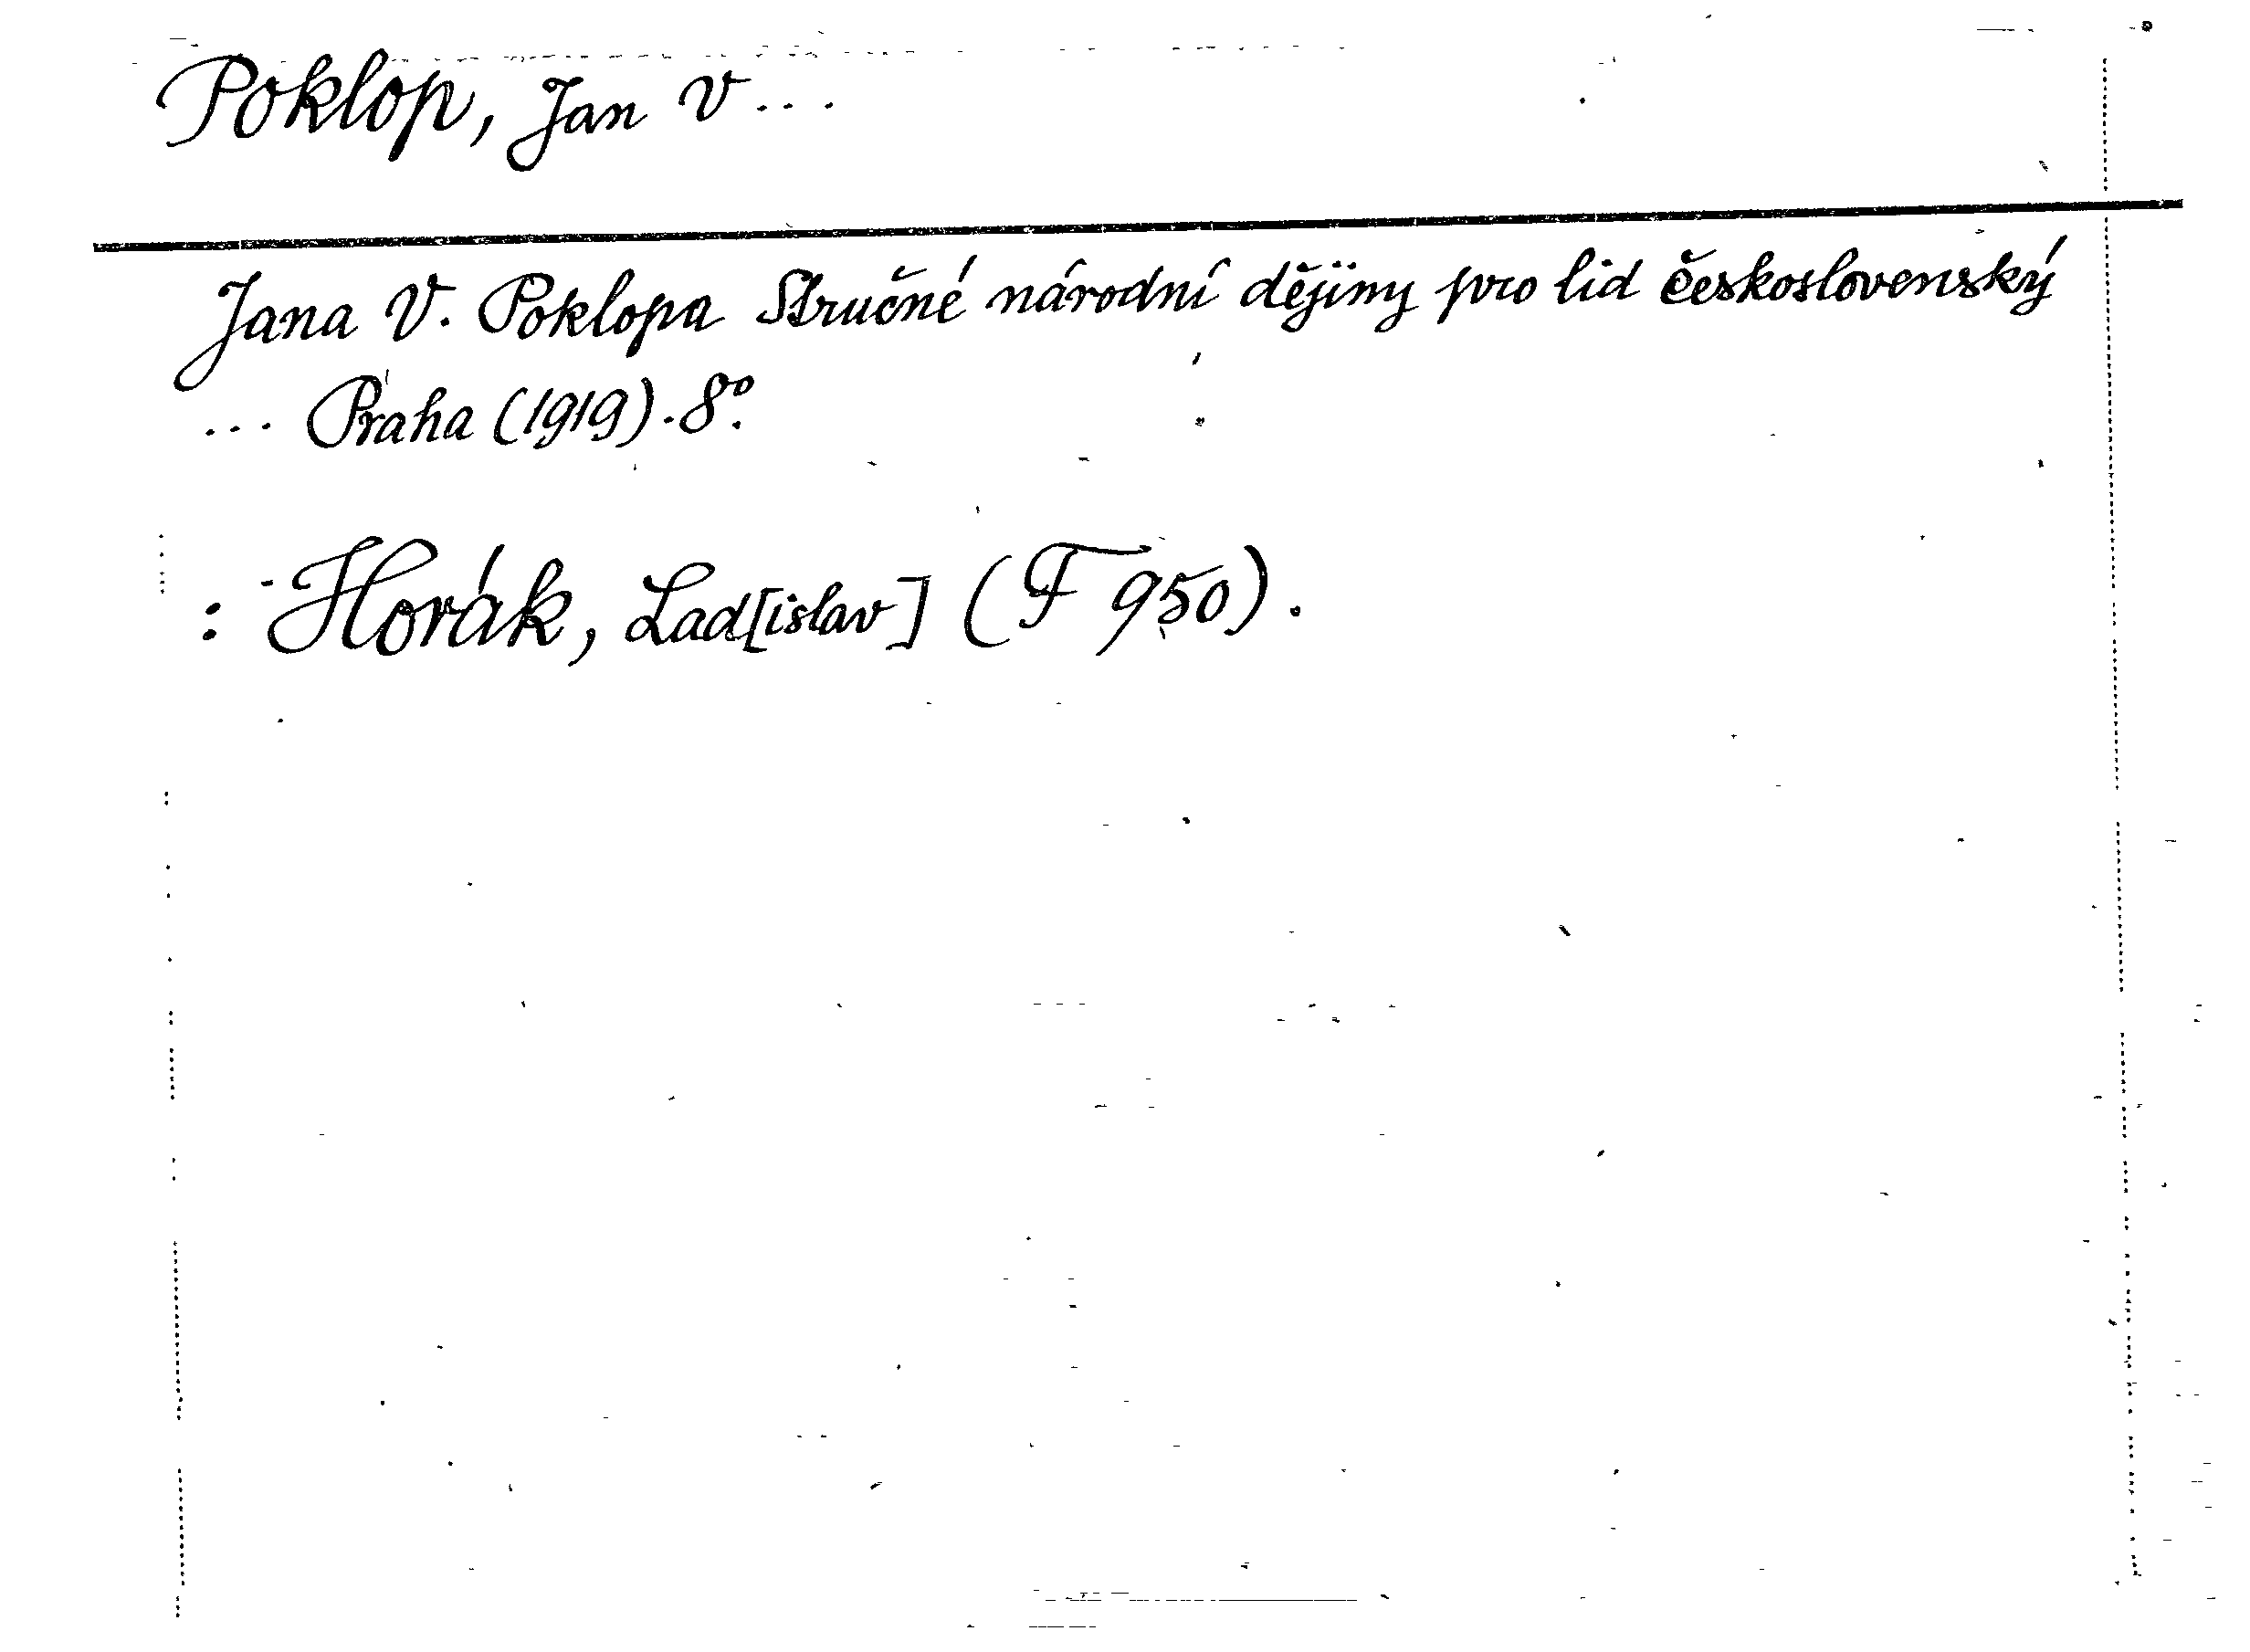 Poklop, Jan V...
Jana V. Poklopa Stručné národní dějiny pro lid československý
... Praha (1919). 8°.
: Horák, Lad[islav] (F 950).